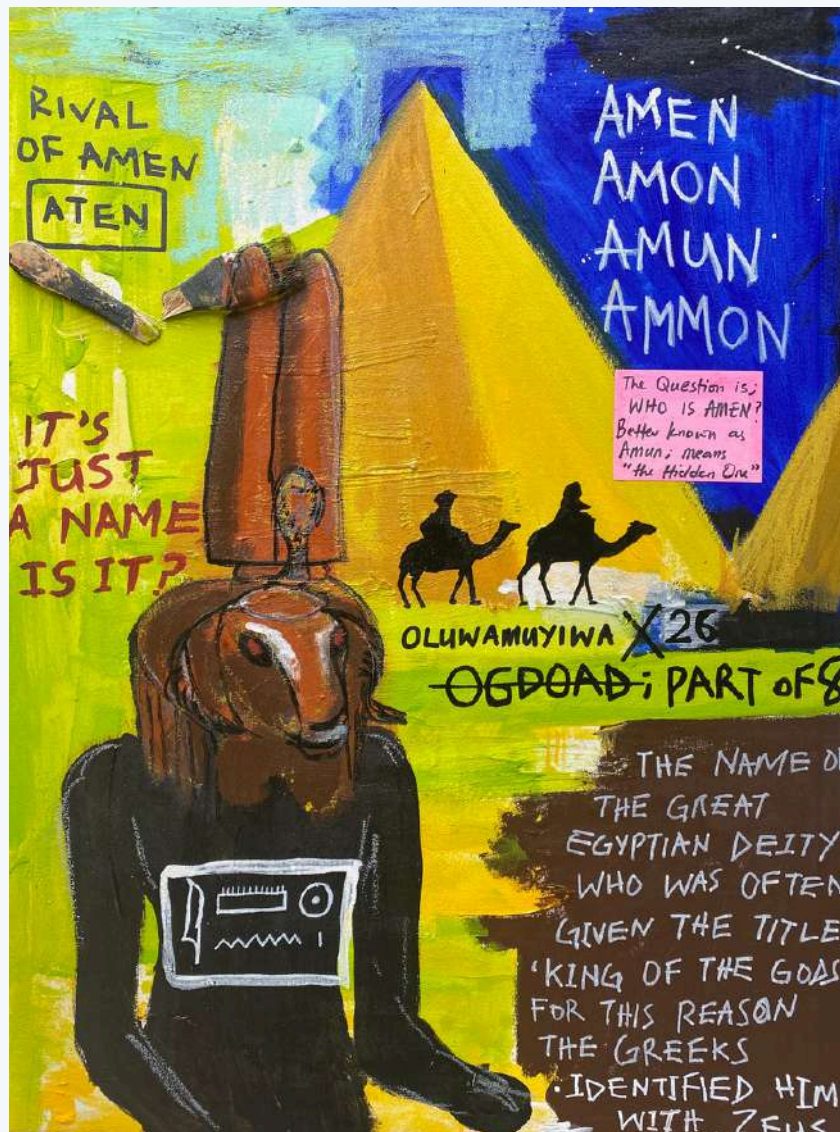 RIVAL
OF AMEN
ATEN
AMEN
AMON
AMUN
AMMON
The Question is;
WHO IS AMEN?
Better known as
Amun; means
"the Hidden One"
IT'S
JUST
A NAME
IS IT?
OLUWAMUYIWA X 26
OGDOAD; PART OF 8
THE NAME O
THE GREAT
EGYPTIAN DEITY
WHO WAS OFTEN
GIVEN THE TITLE
'KING OF THE GODS
FOR THIS REASON
THE GREEKS
·IDENTIFIED HIM
WITH ZEUS